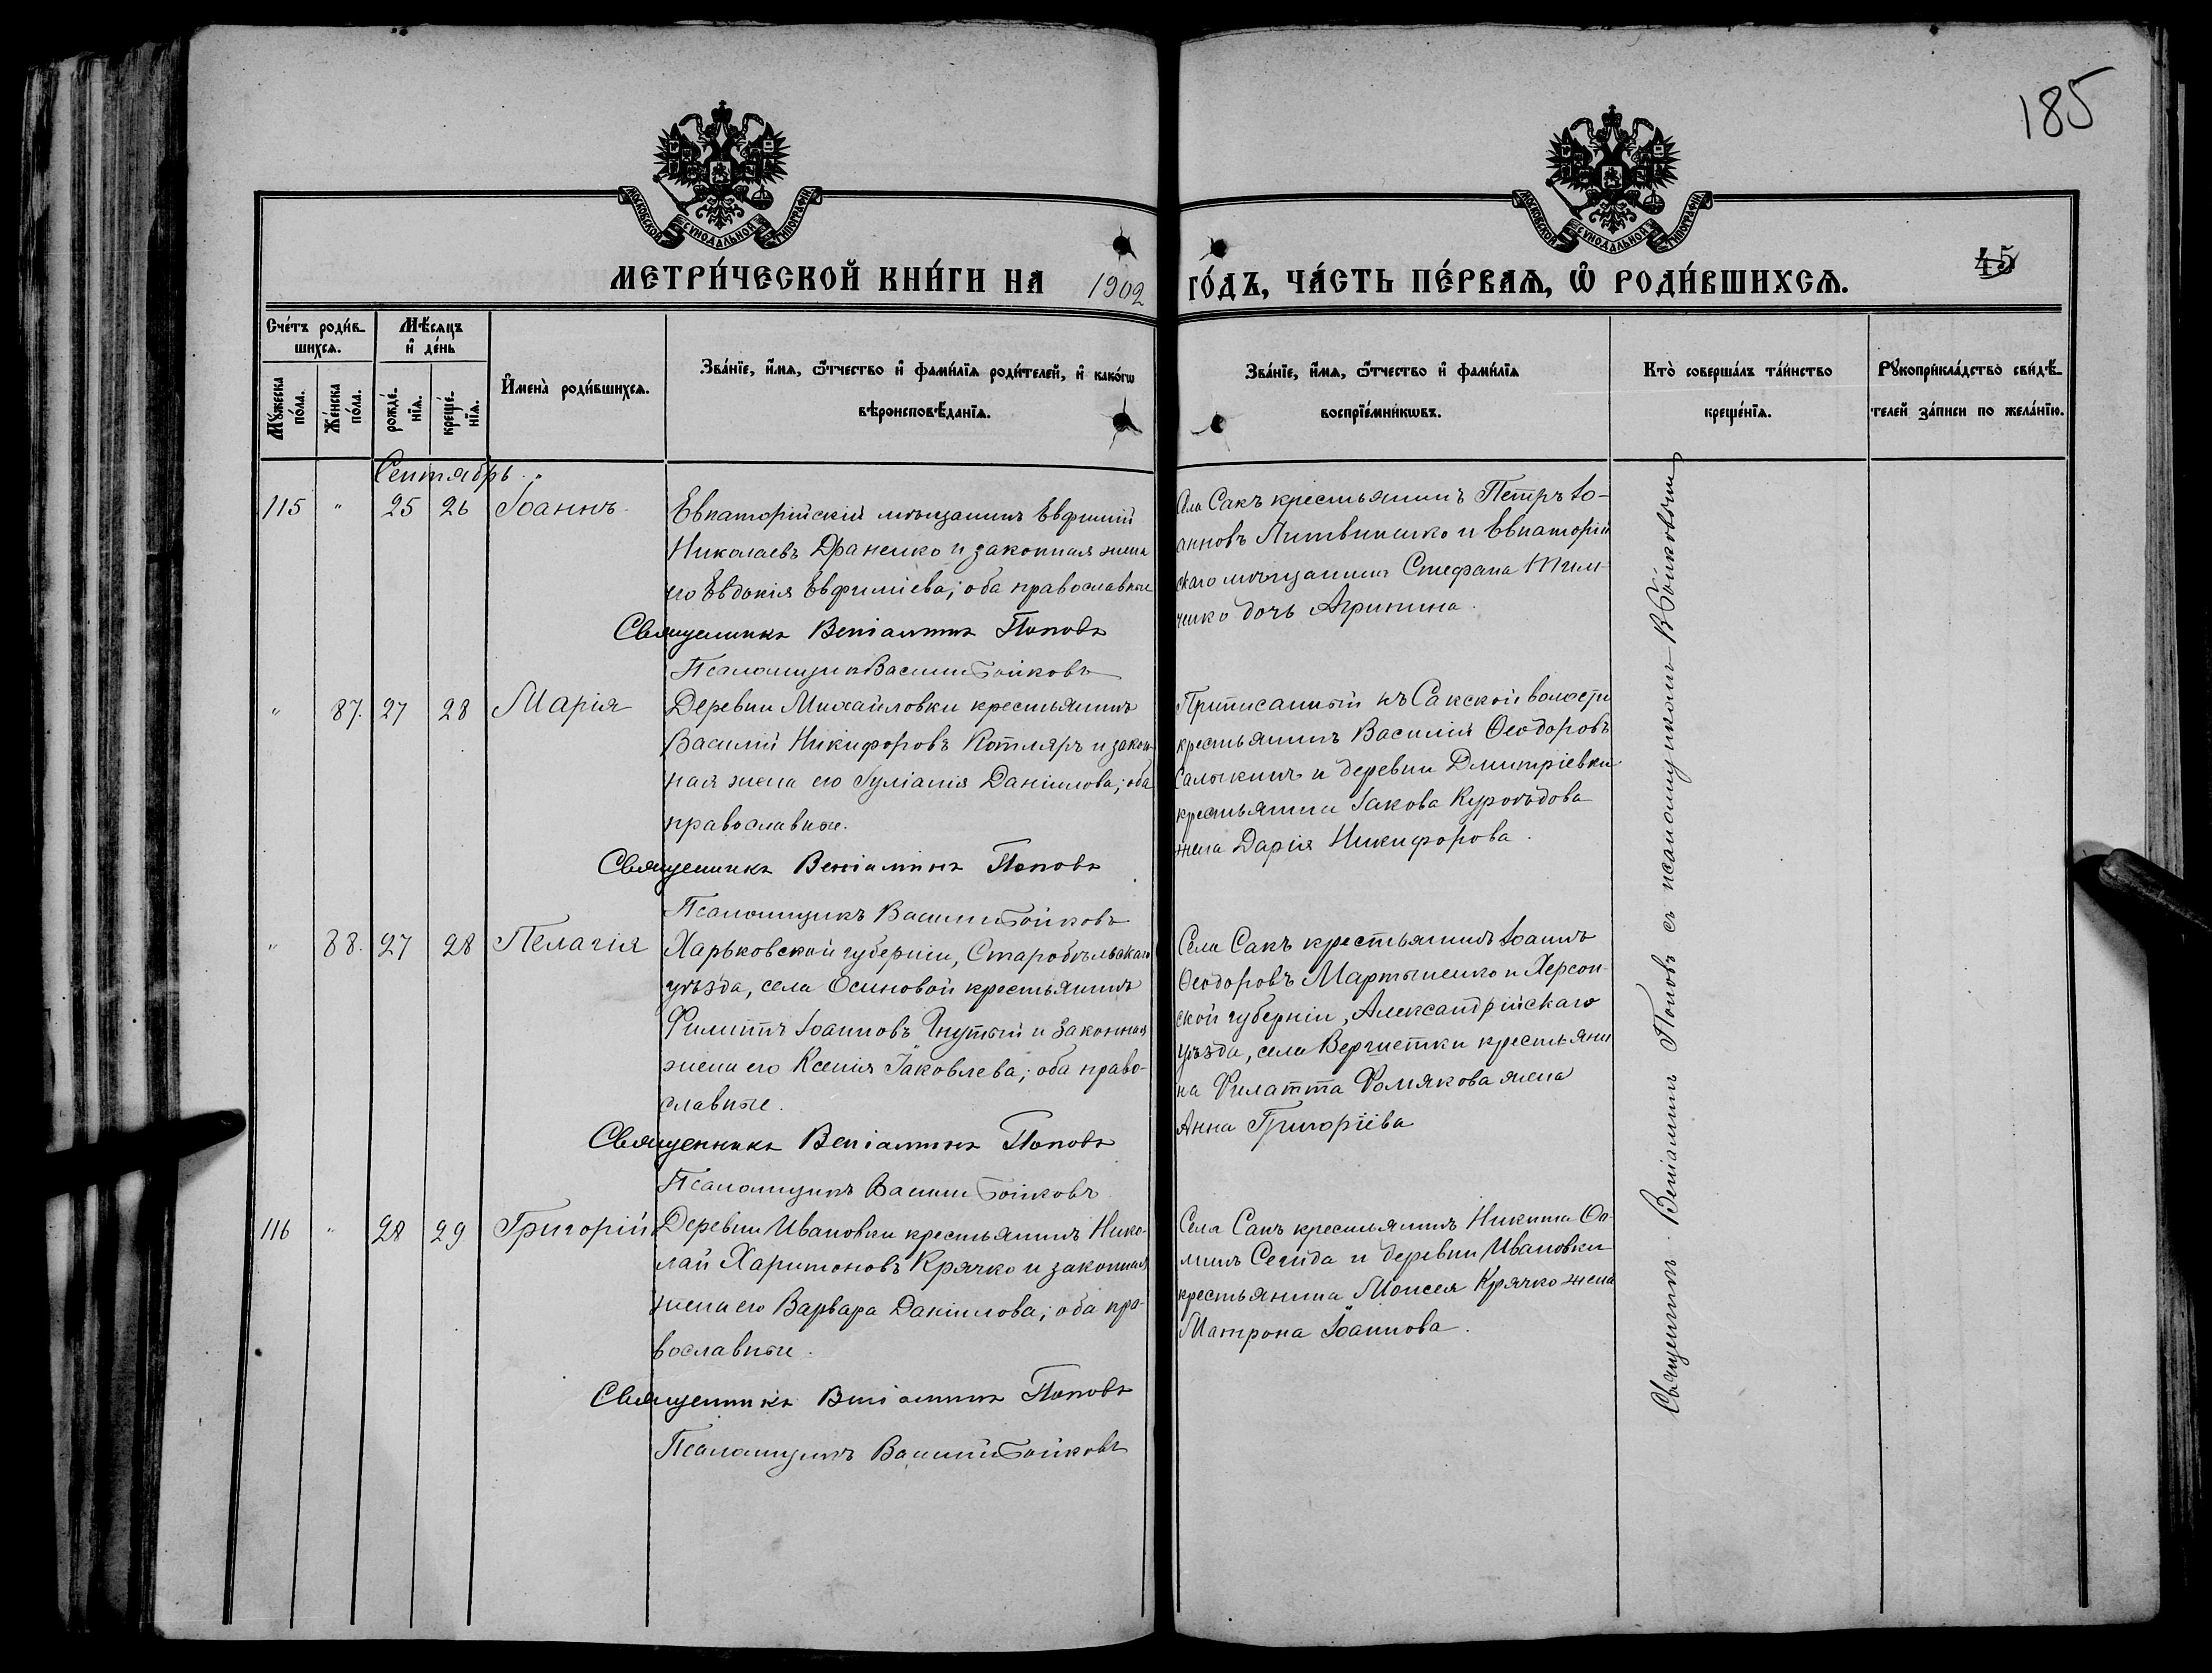 185
МОСКОВСКОЙ СѴНОДАЛЬНОЙ ТИПОГРАФІИ
МОСКОВСКОЙ СѴНОДАЛЬНОЙ ТИПОГРАФІИ
45
МЕТРИ́ЧЕСКОЙ КНИ́ГИ НА 1902 ГО́ДЪ, ЧА́СТЬ ПЕ́РВАѦ, Ѡ҆ РОДИ́ВШИХСѦ.
Сче́тъ роди́в-
шихсѧ.
Мꙋ́жеска по́ла.
Же́нска по́ла.
Мѣ́сѧцъ
и҆ де́нь
рожде́-
нїѧ.
креще́-
нїѧ.
И҆мена̀ роди́вшихсѧ.
Зва́нїе, и҆́мѧ, ѻ҆́тчество и҆ фами́лїѧ роди́телей, и҆ како́гѡ
вѣроисповѣ́данїѧ.
Зва́нїе, и҆́мѧ, ѻ҆́тчество и҆ фами́лїѧ
воспрїе́мникѡвъ.
Кто̀ соверша́лъ та́инство
креще́нїѧ.
Рꙋкоприкла́дство свидѣ́-
телей за́писи по жела́нїю.
Сентябрь
115 " 25 26 Іоаннъ
Евпаторійскій мѣщанинъ Евфимій
Николаевъ Драненко и законная жена
его Евдокія Евфиміева; оба православные
Священникъ Веніаминъ Поповъ
Псаломщикъ Василій Бойковъ
Села Сакъ крестьянинъ Петръ Іо-
анновъ Литвиненко и Евпаторій
скаго мѣщанина Стефана Тим-
ченко дочь Агрипина.
" 87. 27 28 Марія
Деревни Михайловки крестьянинъ
Василій Никифоровъ Котляръ и закон-
ная жена его Іуліанія Даніилова; оба
православные.
Священникъ Веніаминъ Поповъ
Псаломщикъ Василій Бойковъ
Приписанный къ Сакской волости
крестьянинъ Василій Ѳеодоровъ
Салыкинъ и деревни Дмитріевки
крестьянина Іакова Куроѣдова
жена Дарія Никифорова.
" 88. 27 28 Пелагія
Харьковской губерніи, Старобѣльскаго
уѣзда, села Осиновой крестьянинъ
Филиппъ Іоанновъ Гнутый и законная
жена его Ксенія Іаковлева; оба право-
славные.
Священникъ Веніаминъ Поповъ
Псаломщикъ Василій Бойковъ
Села Сакъ крестьянинъ Іоаннъ
Ѳеодоровъ Мартыненко и Херсон-
ской губерніи, Александрійскаго
уѣзда, села крестьяни
на жена
Анна Григоріева
116 " 28 29 Григорій
Деревни Ивановки крестьянинъ Нико-
лай Харитоновъ Крячко и законная
жена его Варвара Даніилова; оба пра-
вославные.
Священникъ Веніаминъ Поповъ
Псаломщикъ Василій Бойковъ
Села Сакъ крестьянинъ Никита Ѳо-
минъ и деревни Ивановки
крестьянина Моисея Крячко жена
Матрона Іоаннова.
Священникъ Веніаминъ Поповъ съ псаломщикомъ В. Бойковымъ